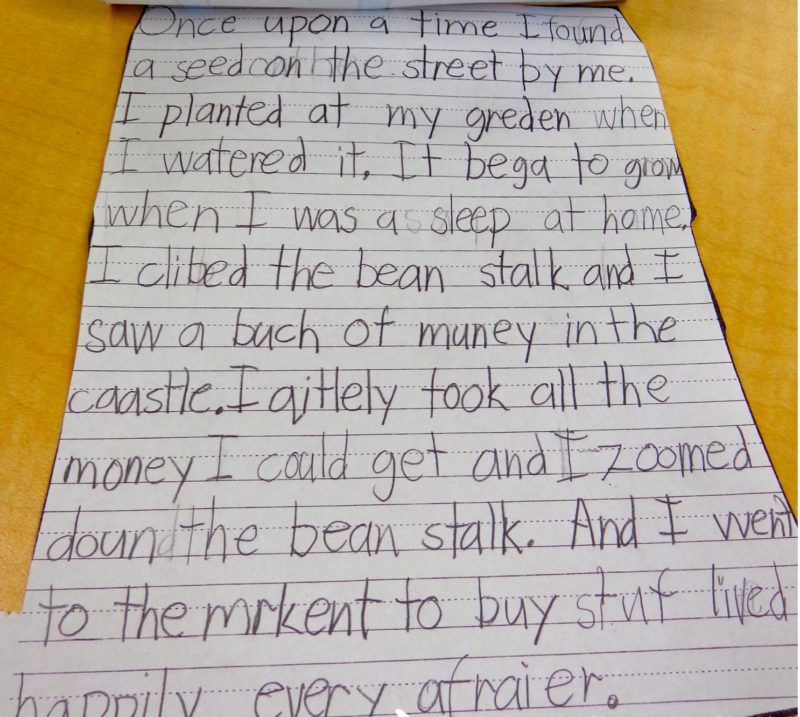 Once upon a time I found
a seed on the street by me.
I planted at my greden when
I watered it. It bega to grow
when I was a sleep at home.
I clibed the bean stalk and I
saw a buch of muney in the
caastle. I qitlely took all the
money I could get and I zoomed
doun the bean stalk. And I went
to the mrkent to buy stuf lived
happily every afraier.